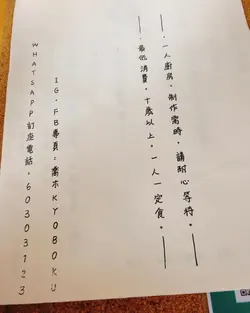 一人廚房。制作需時。請耐心等待。
最低消費。十歲以上。一人一定食。
IG。FB專頁:喬木KYOBOKU
WHATSAPP訂座電話。60303123